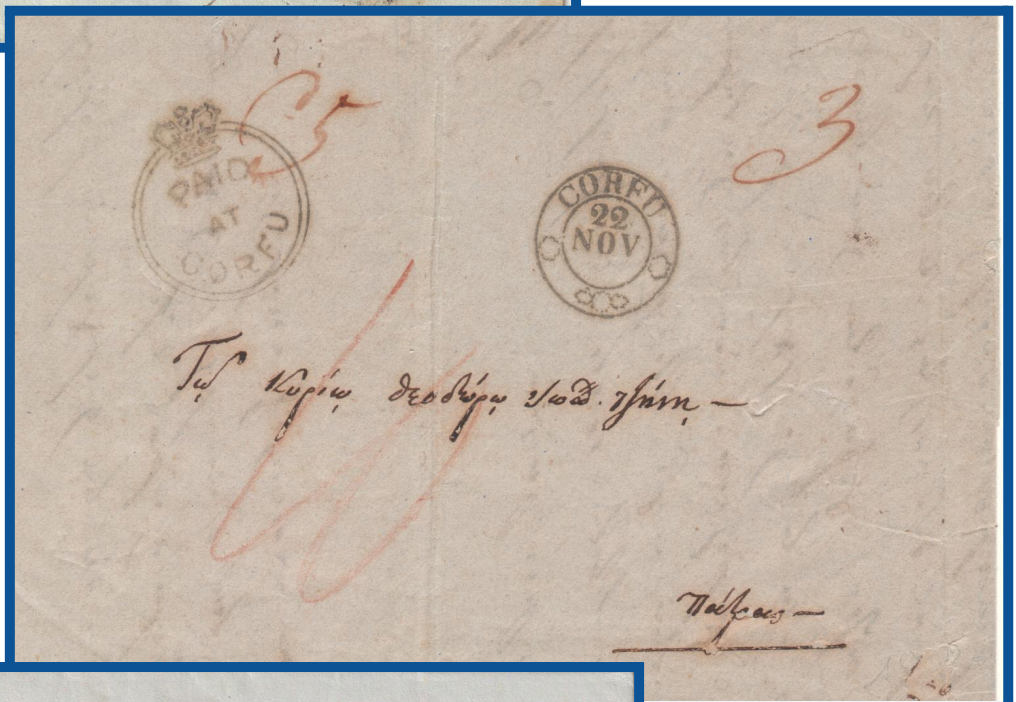 5
3
PAID
AT
CORFU
CORFU
22
NOV
Τῷ Κυρίῳ Θεοδώρῳ
Πάτρας —